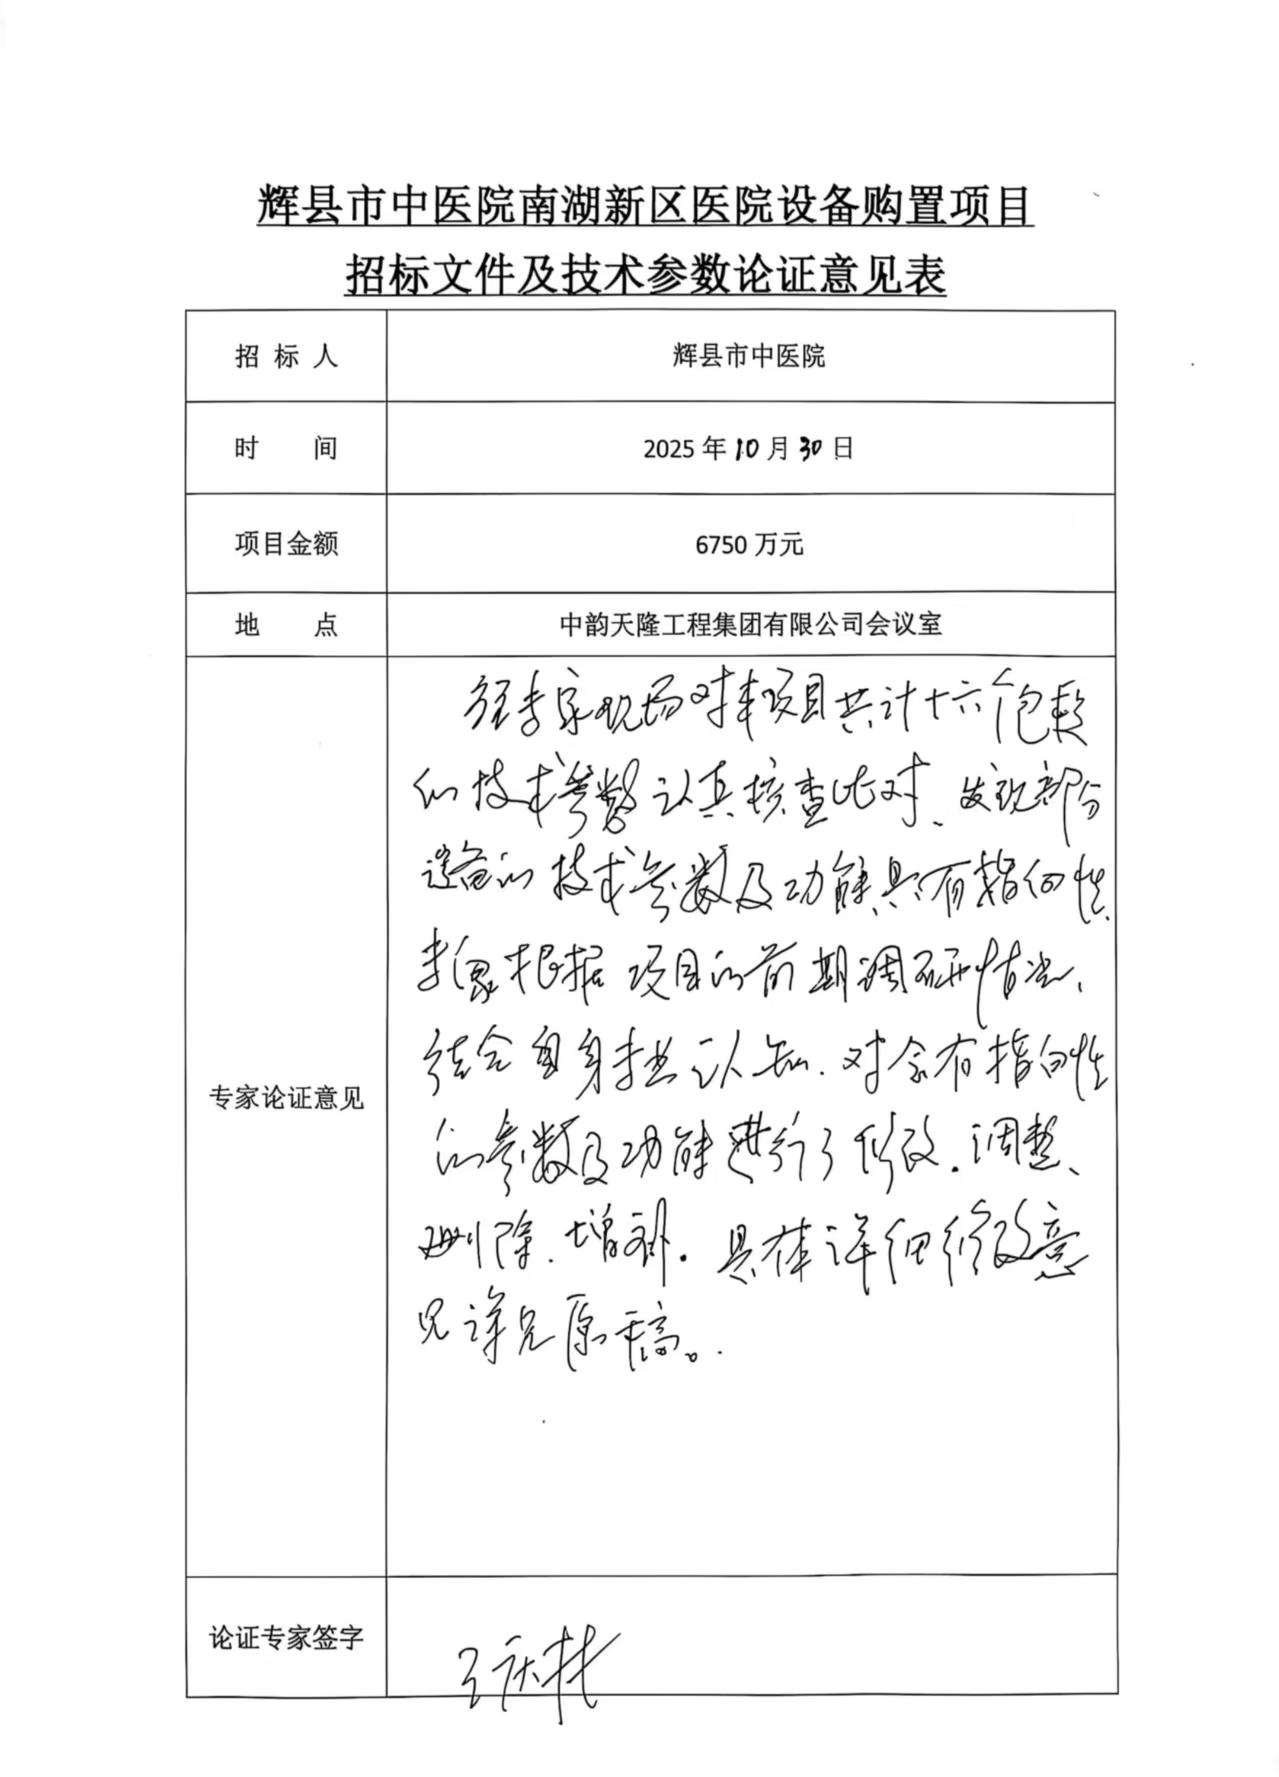 辉县市中医院南湖新区医院设备购置项目
招标文件及技术参数论证意见表
招 标 人 辉县市中医院
时 间 2025 年 10 月 30 日
项目金额 6750 万元
地 点 中韵天隆工程集团有限公司会议室
专家论证意见
经专家现场对本项目共计十六个包段
的技术参数认真核查比对、发现部分
设备的技术参数及功能具有指向性
专家根据项目的前期调研情况、
结合自身专业认知、对含有指向性
的参数及功能进行了修改、调整、
删除、增补。具体详细修改意
见详见原稿。
论证专家签字 王庆